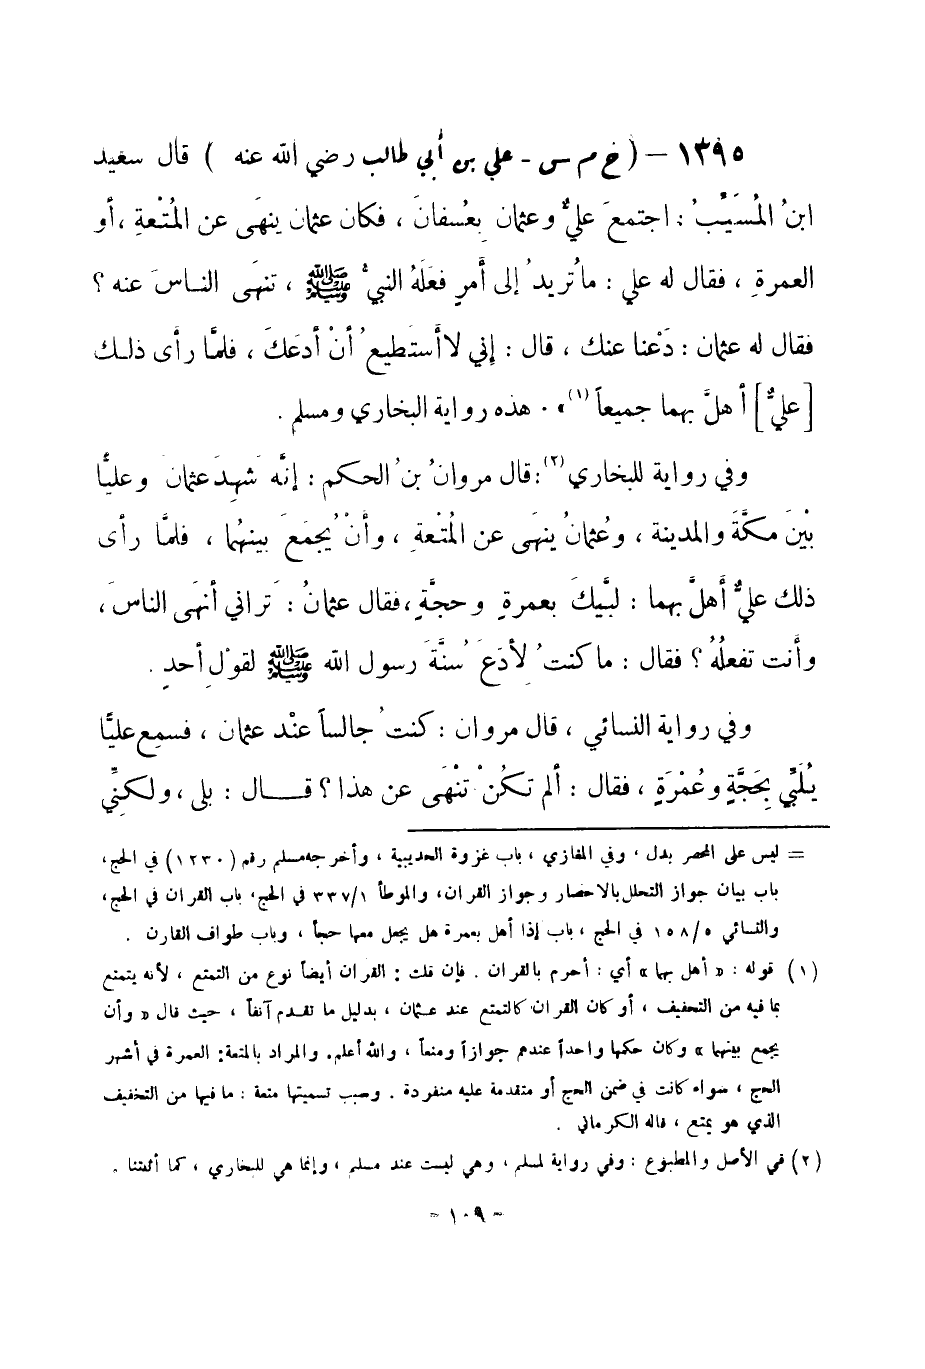 ١٣٩٥ – ( خ م س – علي بن أبي طالب رضي الله عنه ) قال سعيد
ابنُ المُسَيَّبُ : اجتمعَ عليٌّ وعثمان بِعُسفانَ ، فكان عثمان ينهَى عن المُتْعةِ ، أو
العمرةِ ، فقال له علي : ما تُريدُ إلى أَمرٍ فعلَهُ النبيُّ ﷺ ، تنهَى الناسَ عنه ؟
فقال له عثمان : دَعْنا عنك ، قال : إني لا أَستطيعُ أنْ أدعَكَ ، فلمَّا رأى ذلك
[ عليٌّ ] أهلَّ بهما جميعاً (١)» . هذه رواية البخاري ومسلم .
وفي رواية للبخاري (٢) : قال مروانُ بنُ الحكم : إنَّه شهِدَ عثمان وعليّاً
بَيْنَ مكَّةَ والمدينة ، وعُثمانُ ينهَى عن المُتْعةِ ، وأنْ يُجمَعَ بينهُما ، فلمَّا رأى
ذلك عليٌّ أَهلَّ بهما : لبَّيكَ بعمرةٍ وحجَّةٍ ، فقال عثمانُ : تَراني أنهَى الناسَ ،
وأَنت تفعلُهُ ؟ فقال : ما كنتُ لِأدَعَ سُنَّةَ رسول الله ﷺ لقوْلِ أحدٍ .
وفي رواية النسائي ، قال مروان : كنتُ جالساً عنْد عثمان ، فسمِع عليّاً
يُلَبِّي بِحَجَّةٍ وعُمْرَةٍ ، فقال : ألم تكُنْ تَنْهَى عن هذا ؟ قال : بلى ، ولكنِّي
= ليس على المحصر بدل ، وفي المغازي ، باب غزوة الحديبية ، وأخرجه مسلم رقم ( ١٢٣٠ ) في الحج ،
باب بيان جواز التحلل بالاحصار وجواز القران ، والموطأ ٣٣٧/١ في الحج ، باب القران في الحج ،
والنسائي ١٥٨/٥ في الحج ، باب إذا أهل بعمرة هل يجعل معها حجاً ، وباب طواف القارن .
(١) قوله : « أهل بهما » أي : أحرم بالقران . فإن قلت : القران أيضاً نوع من التمتع ، لأنه يتمتع
بما فيه من التخفيف ، أو كان القران كالتمتع عند عثمان ، بدليل ما تقدم آنفاً ، حيث قال « وأن
يجمع بينهما » وكان حكمها واحداً عندهم جوازاً ومنعاً ، والله أعلم . والمراد بالمتعة : العمرة في أشهر
الحج ، سواء كانت في ضمن الحج أو متقدمة عليه منفردة . وسبب تسميتها متعة : ما فيها من التخفيف
الذي هو يمتع ، قاله الكرماني .
(٢) في الأصل والمطبوع : وفي رواية لمسلم ، وهي ليست عند مسلم ، وإنما هي للبخاري ، كما أثبتنا .
– ١٠٩ –